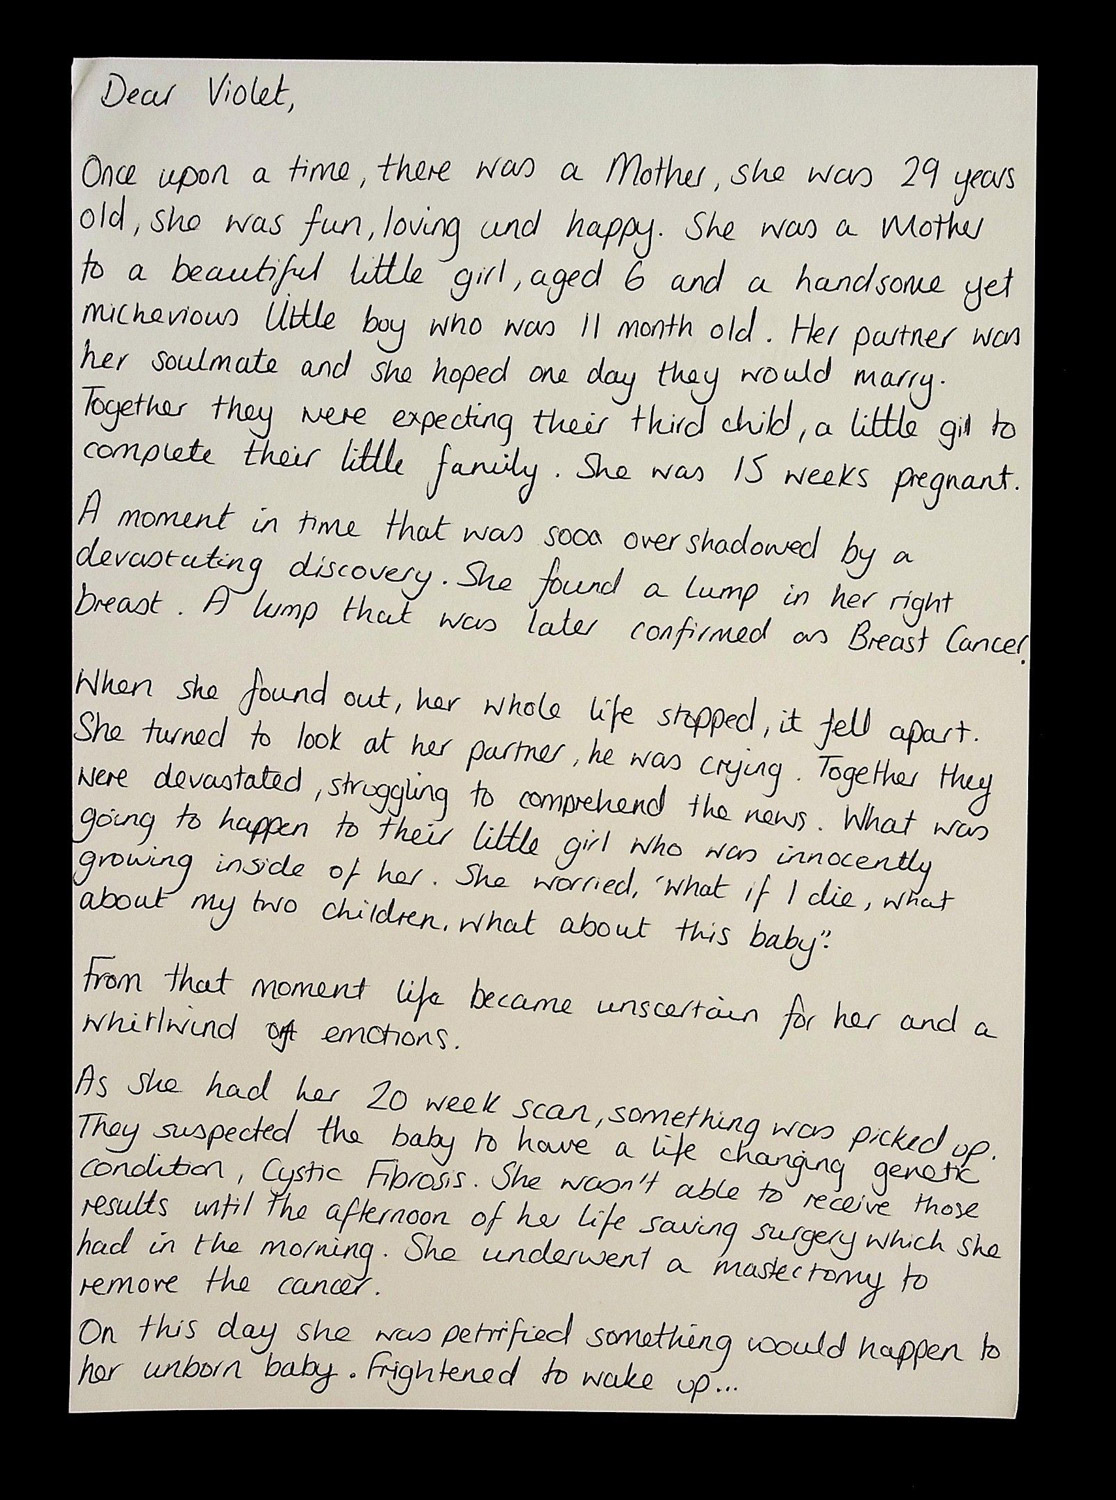 Dear Violet,
Once upon a time, there was a Mother, she was 29 years
old, she was fun, loving and happy. She was a Mother
to a beautiful little girl, aged 6 and a handsome yet
michevious little boy who was 11 month old. Her partner was
her soulmate and she hoped one day they would marry.
Together they were expecting their third child, a little girl to
complete their little family. She was 15 weeks pregnant.
A moment in time that was soon overshadowed by a
devastating discovery. She found a lump in her right
breast. A lump that was later confirmed as Breast Cancer.
When she found out, her whole life stopped, it fell apart.
She turned to look at her partner, he was crying. Together they
were devastated, struggling to comprehend the news. What was
going to happen to their little girl who was innocently
growing inside of her. She worried, "what if I die, what
about my two children. what about this baby".
From that moment life became unscertain for her and a
whirlwind of emotions.
As she had her 20 week scan, something was picked up.
They suspected the baby to have a life changing genetic
condition, Cystic Fibrosis. She wasn't able to receive those
results until the afternoon of her life saving surgery which she
had in the morning. She underwent a mastectomy to
remove the cancer.
On this day she was petrified something would happen to
her unborn baby. Frightened to wake up...